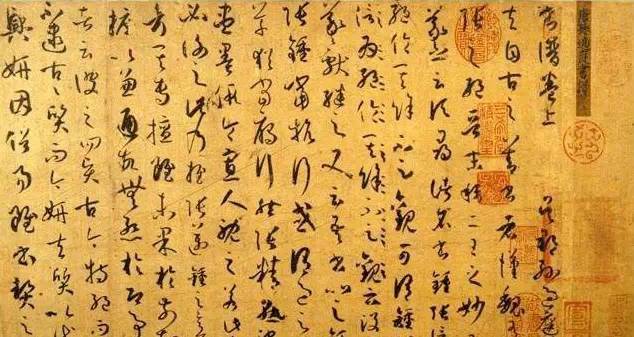 書譜卷上 吳郡孫過庭
夫自古之善書者漢魏
張之絕晉末稱二王之妙
羲之云頃尋諸名書鍾張信
絕倫其餘不足觀可謂鍾
信為絕倫其餘不足觀云沒
羲獻繼之又云吾書比之
張鍾當抗行或謂過之
草猶當雁行然張精熟
盡墨假令寡人耽之若此
必謝之此乃推張邁鍾之
考其專擅雖未果於前
摭以兼通故無慚於即事
者云彼之四賢古今特絕而
不逮古古質而今妍夫質以代
興妍因俗易雖書契之